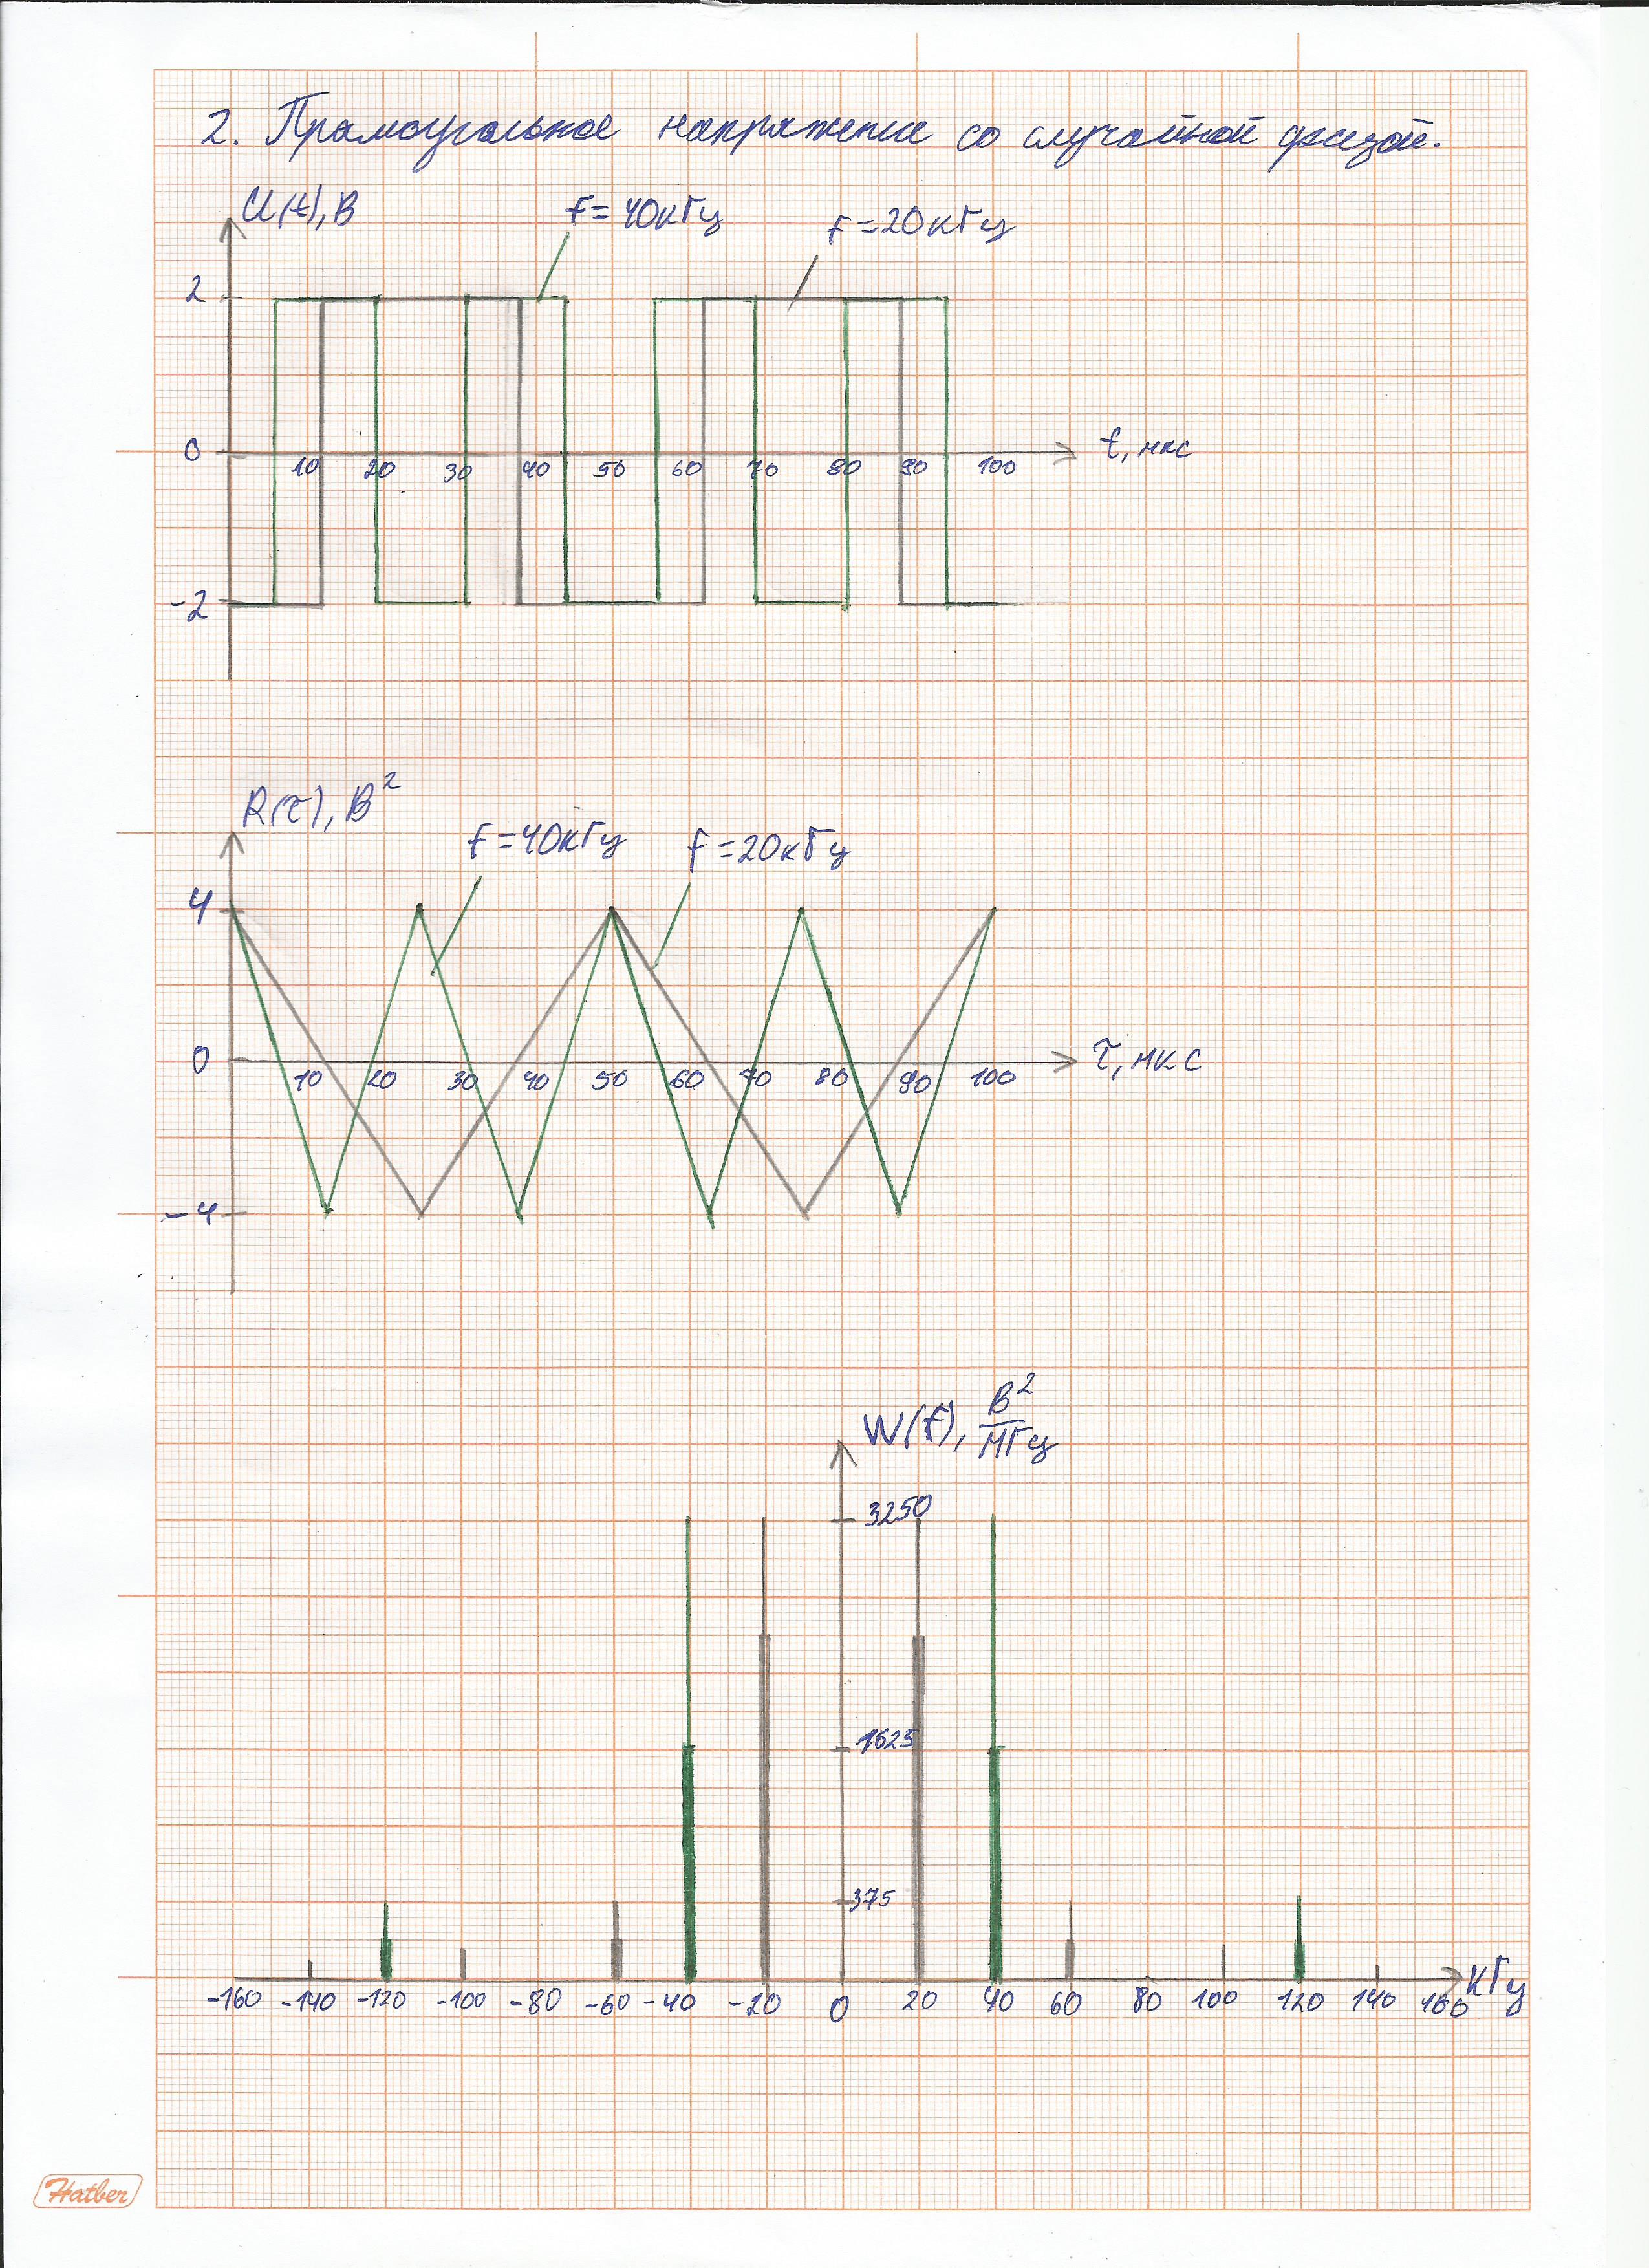 2. Прямоугольное напряжение со случайной фазой.
U(t), В
f=40кГц
f=20кГц
2
0
10 20 30 40 50 60 70 80 90 100
t, мкс
-2
R(τ), В²
f=40кГц
f=20кГц
4
0
10 20 30 40 50 60 70 80 90 100
τ, мкс
-4
W(f), В²/МГц
3250
1625
375
-160 -140 -120 -100 -80 -60 -40 -20 0 20 40 60 80 100 120 140 160
кГц
Hatber